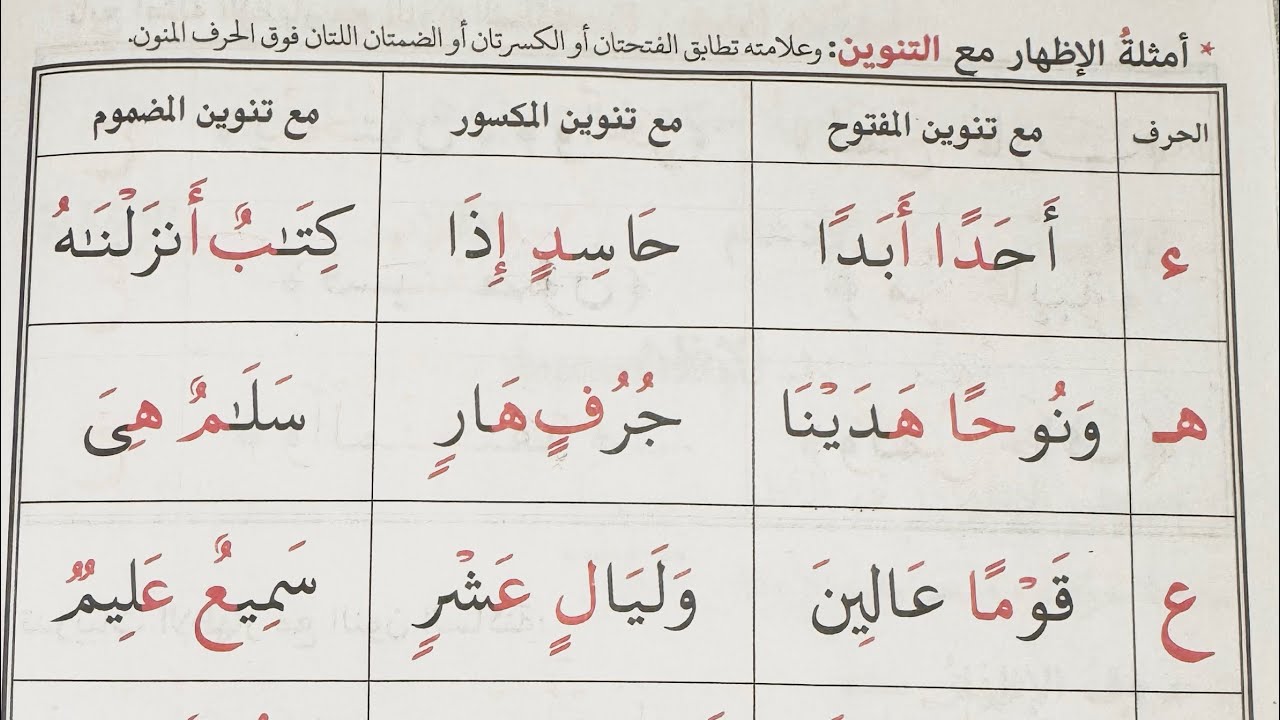 * أمثلةُ الإظهار مع التنوين: وعلامته تطابق الفتحتان أو الكسرتان أو الضمتان اللتان فوق الحرف المنون.
الحرف مع تنوين المفتوح مع تنوين المكسور مع تنوين المضموم
ء أَحَدًا أَبَدًا حَاسِدٍ إِذَا كِتَـٰبٌ أَنزَلْنَـٰهُ
هـ وَنُوحًا هَدَيْنَا جُرُفٍ هَارٍ سَلَـٰمٌ هِىَ
ع قَوْمًا عَالِينَ وَلَيَالٍ عَشْرٍ سَمِيعٌ عَلِيمٌ